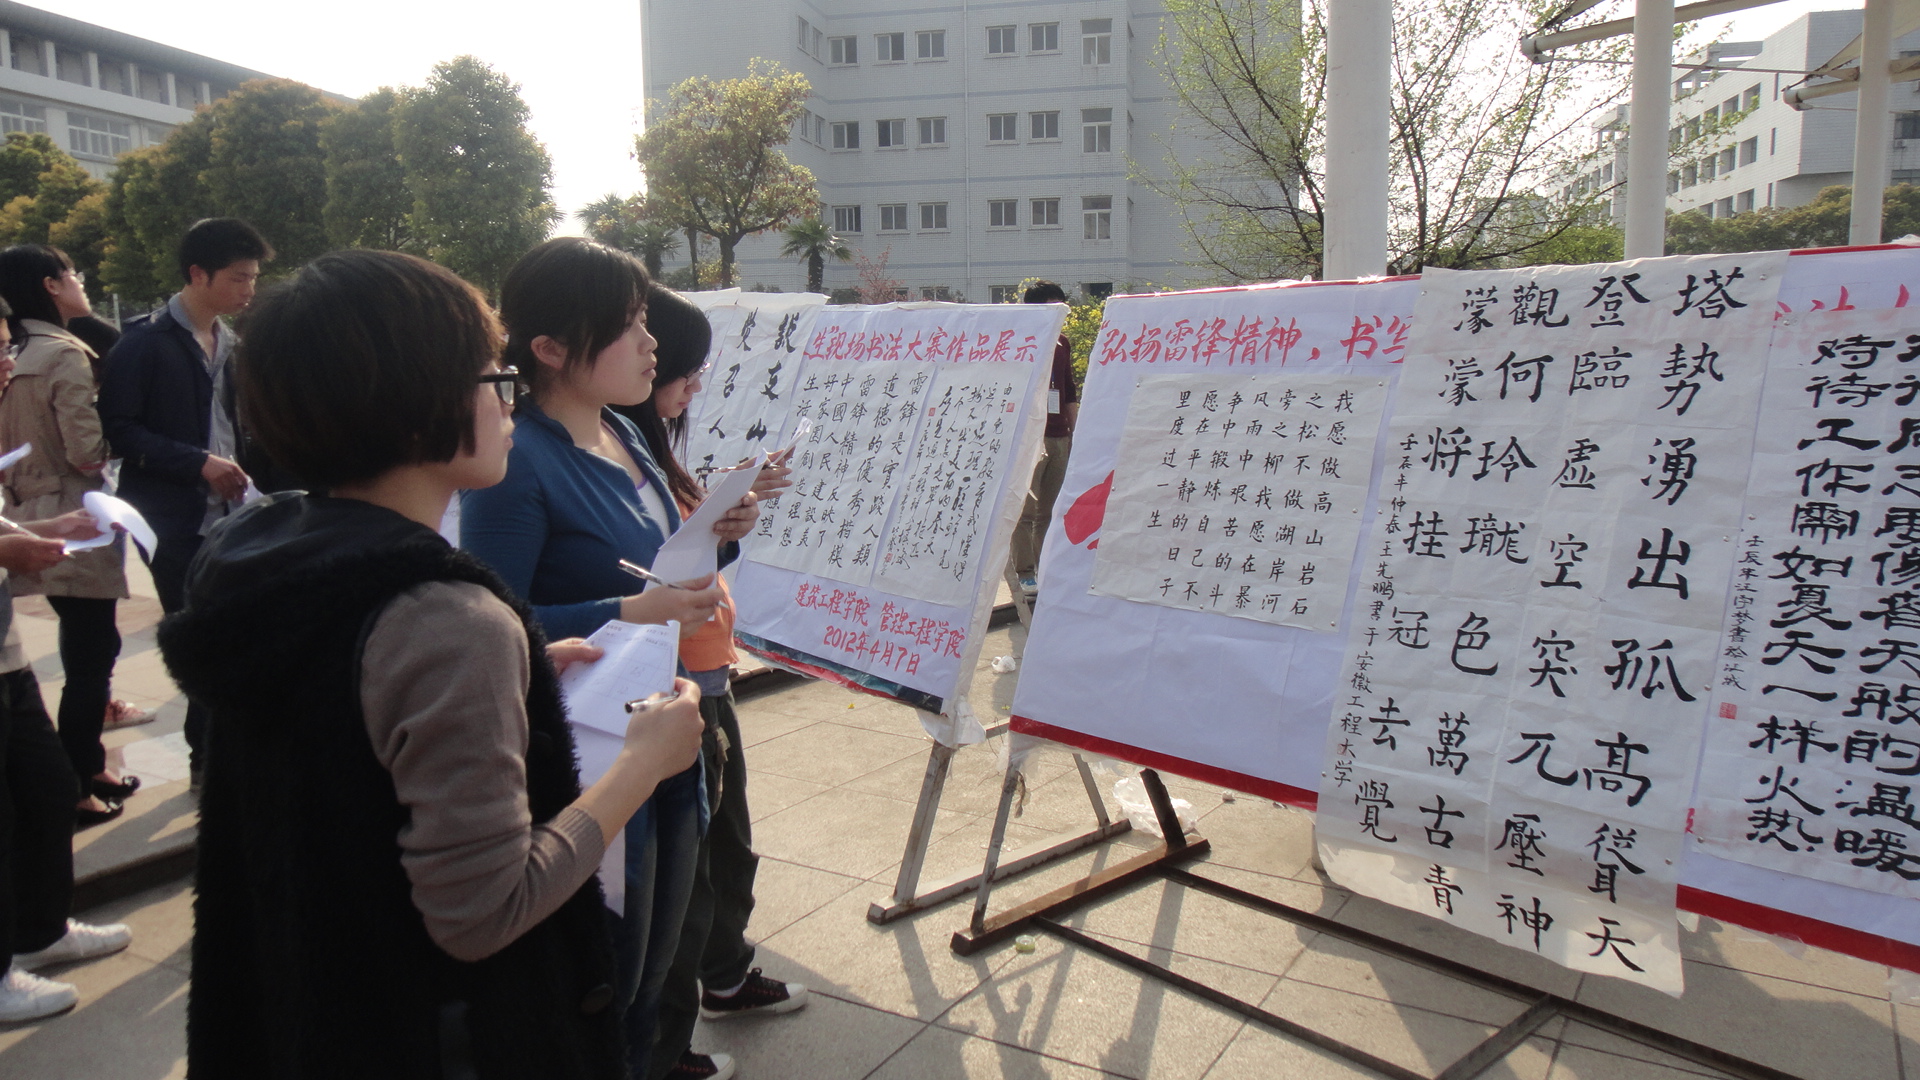 生现场书法大赛作品展示
雷鋒是實踐人類
道德的優秀楷模
雷鋒精神反映了
中國人民建設美
好家園創造理想
建筑工程学院 管理工程学院
2012年4月7日
弘扬雷锋精神，书写
我愿做高山岩石
之松不做湖岸河
旁之柳我愿在暴
风雨中艰苦的斗
争中锻炼自己不
愿在平静的日子
里度过一生
塔勢湧出孤高聳天
登臨虛空突兀壓神
觀何玲瓏色萬古青
濛濛将挂冠去覺
壬辰年仲春王先鹏書于安徽工程大学
同志要像春天般的温暖
对待工作需如夏天一样火热